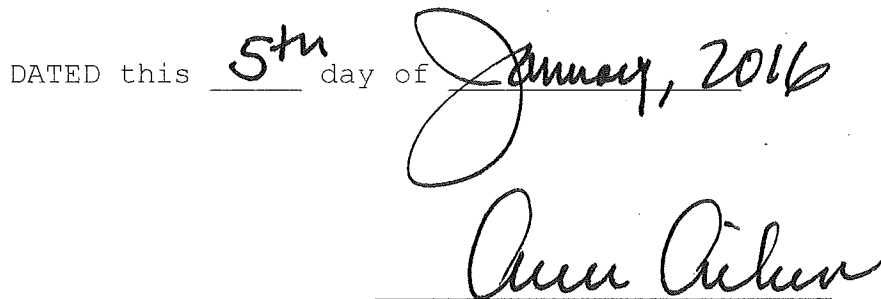 DATED this 5th day of January, 2016
Ann Aiken